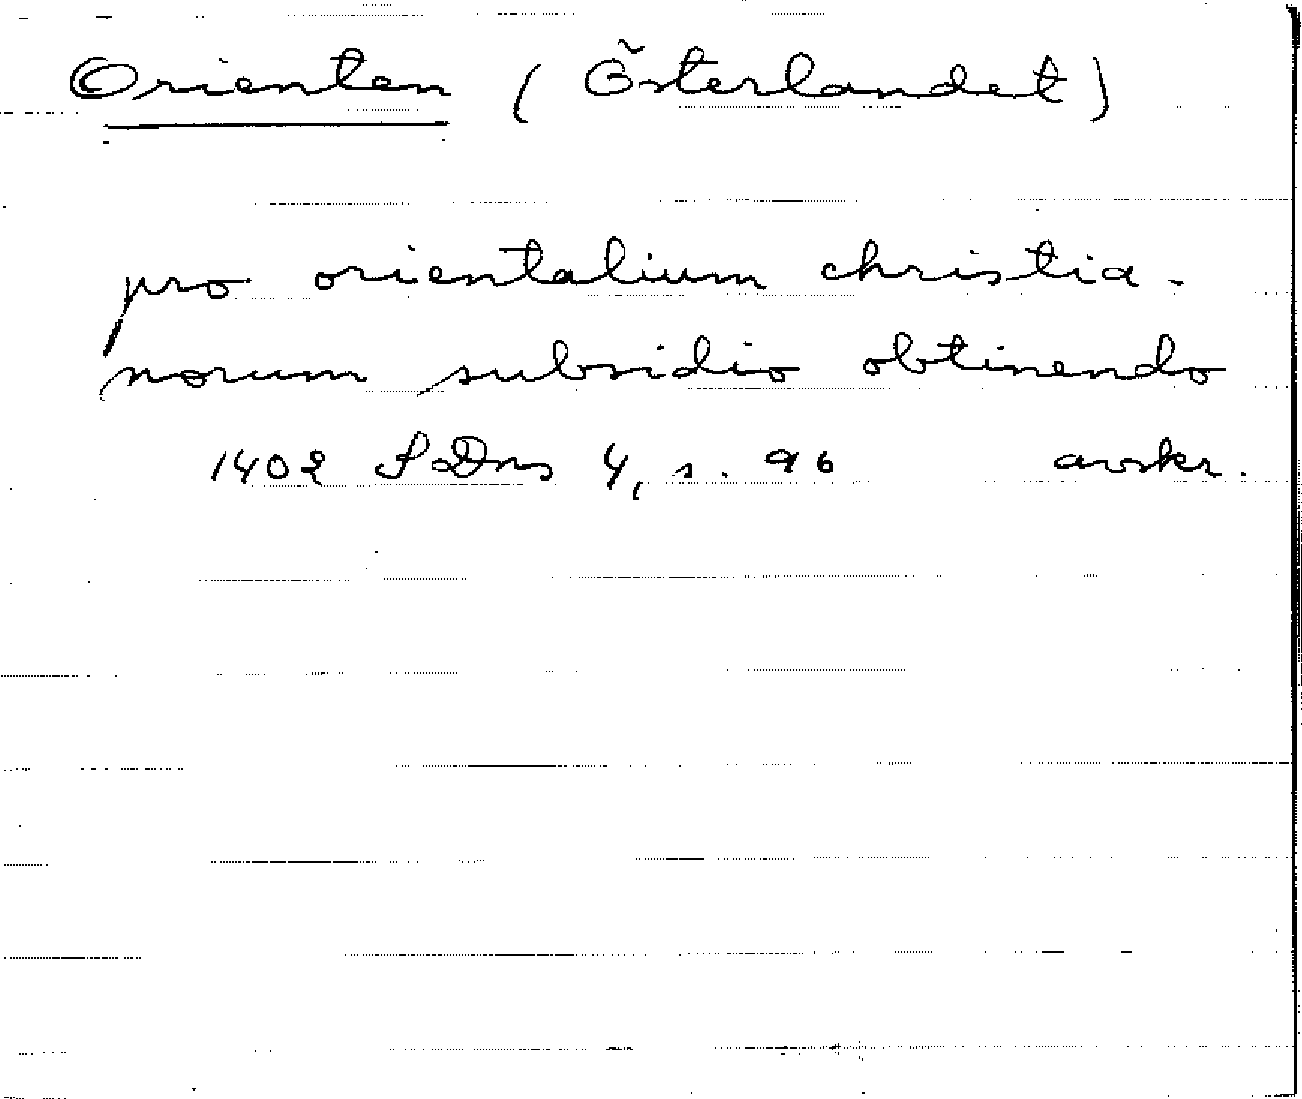 Orienten (Österlandet)
pro orientalium christia-
norum subsidio obtinendo
1402 SDns 4, s. 96 avskr.